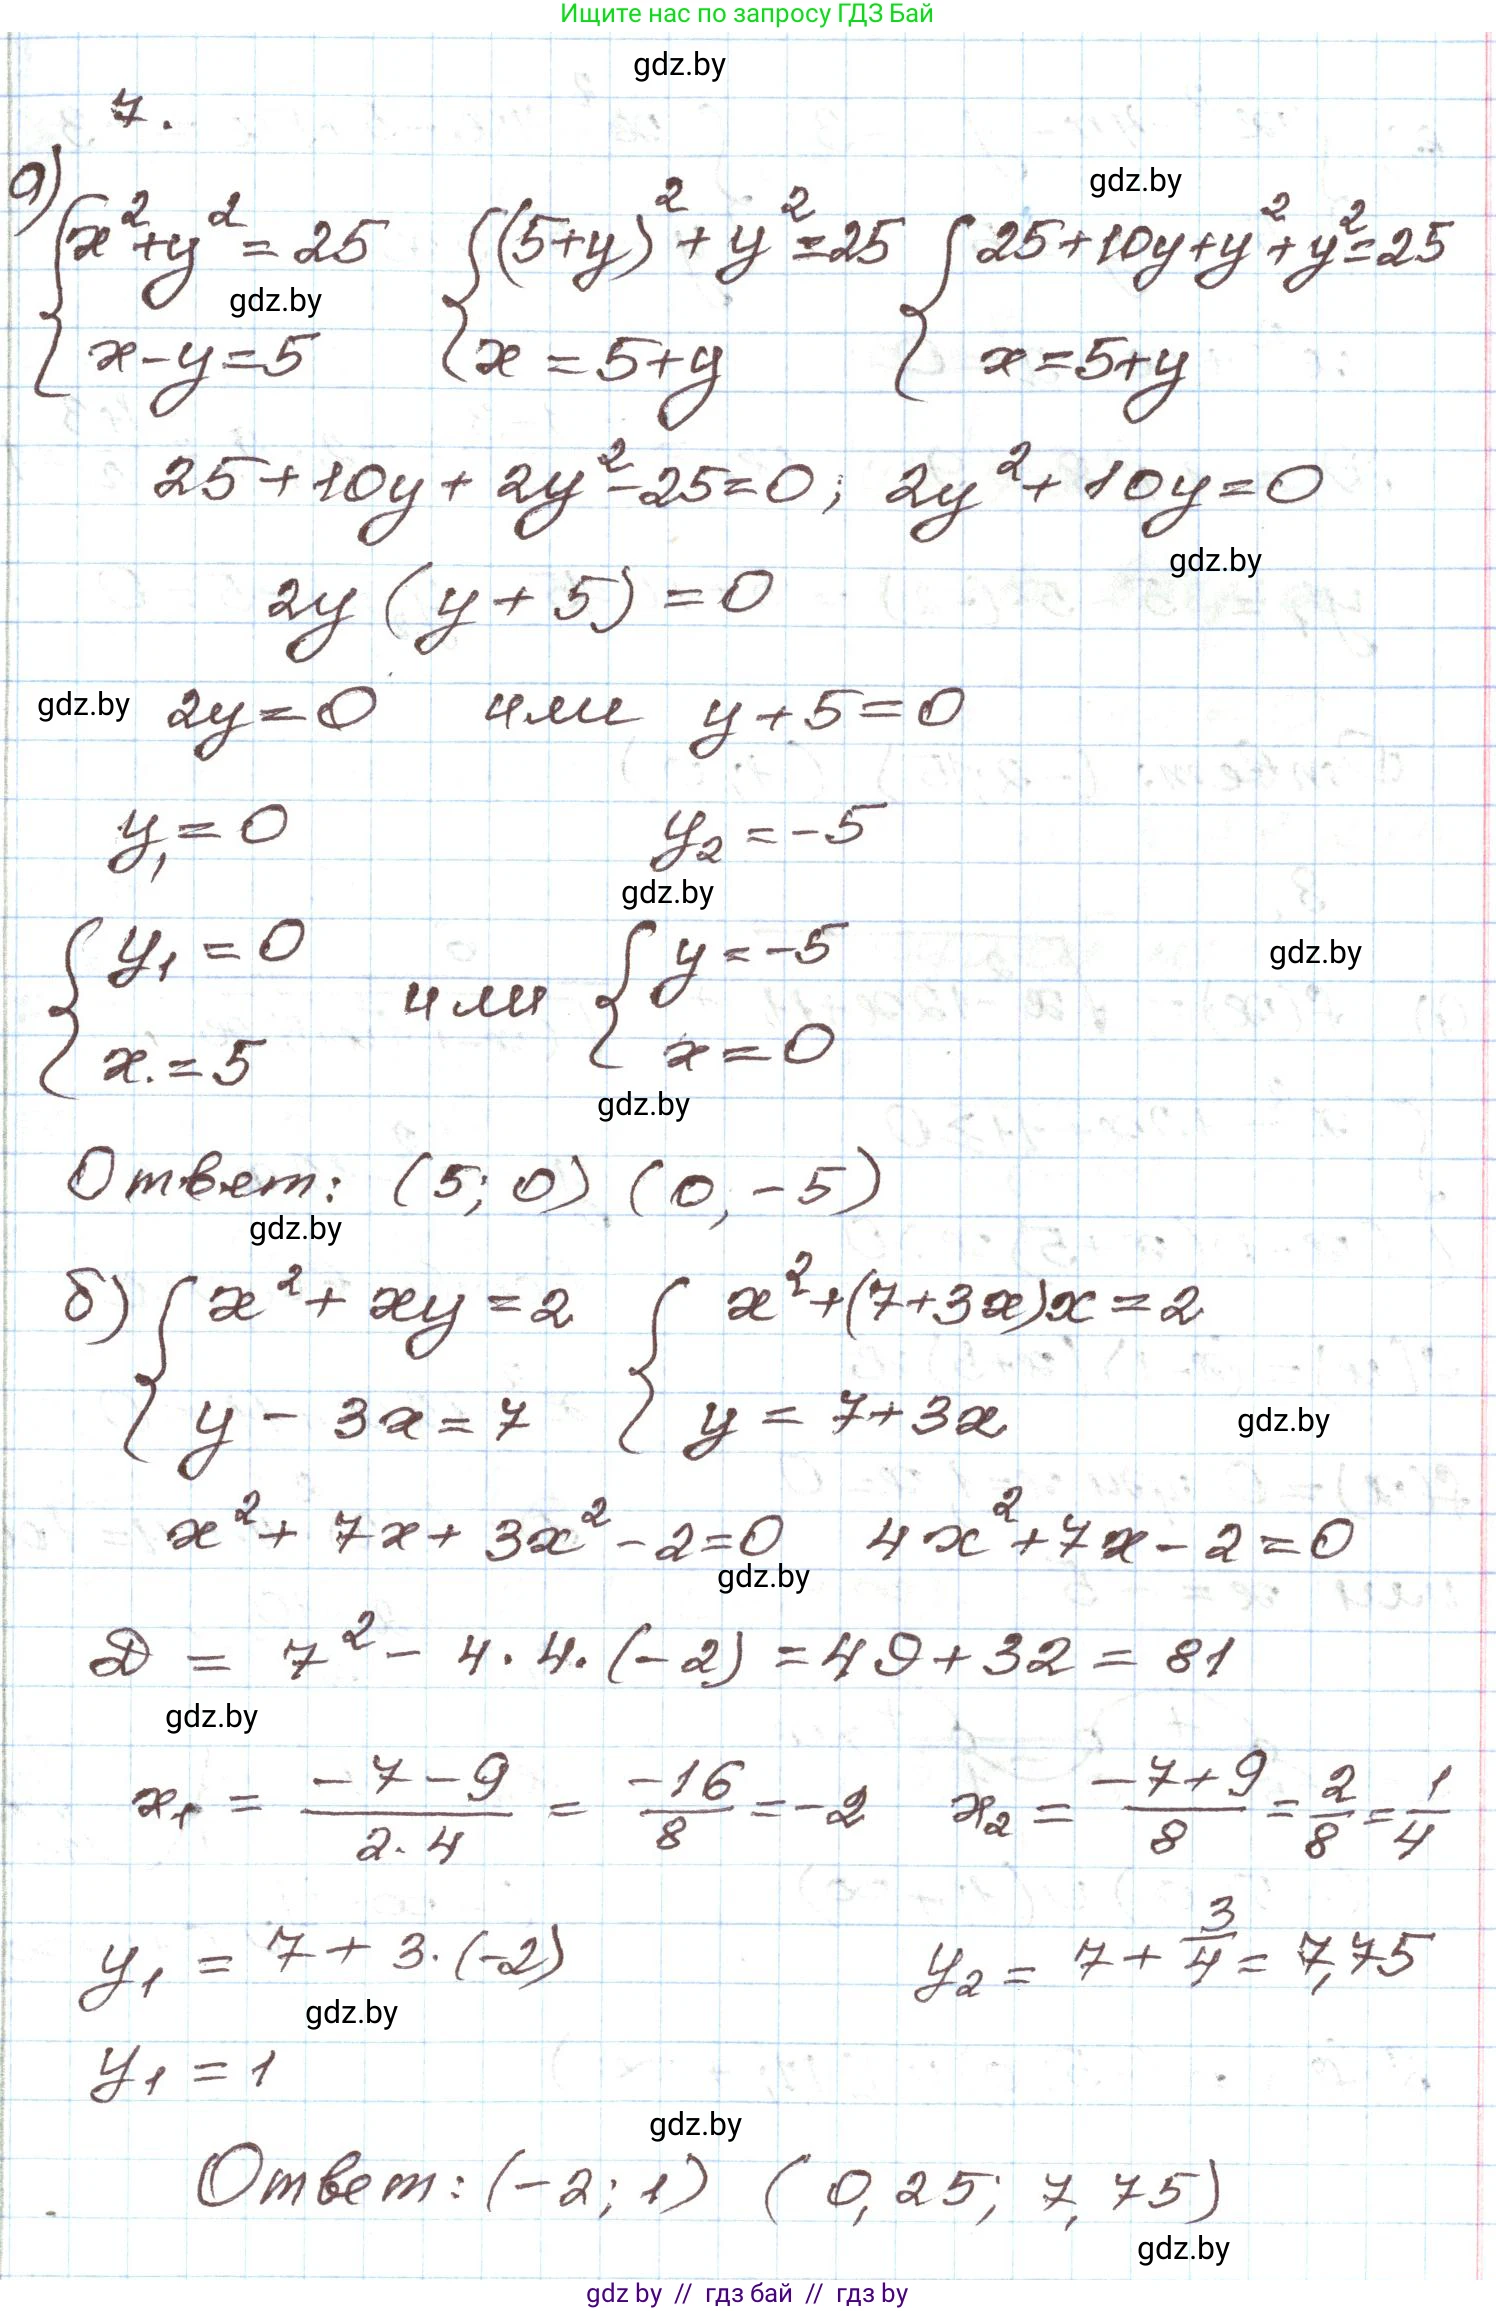 Ищите нас по запросу ГДЗ Бай
gdz.by
7.
gdz.by
а) { x² + y² = 25 { (5+y)² + y² = 25 { 25 + 10y + y² + y² = 25
gdz.by
x - y = 5 x = 5+y x = 5+y
25 + 10y + 2y² - 25 = 0; 2y² + 10y = 0
gdz.by
2y (y + 5) = 0
gdz.by 2y = 0 или y + 5 = 0
y₁ = 0 y₂ = -5
gdz.by
{ y₁ = 0 или { y = -5
gdz.by
x. = 5 x = 0
gdz.by
Ответ: (5; 0) (0, -5)
gdz.by
б) { x² + xy = 2 { x² + (7+3x)x = 2
y - 3x = 7 y = 7+3x
gdz.by
x² + 7x + 3x² - 2 = 0 4x² + 7x - 2 = 0
gdz.by
D = 7² - 4 · 4 · (-2) = 49 + 32 = 81
gdz.by
x₁ = (-7-9)/(2·4) = -16/8 = -2 x₂ = (-7+9)/8 = 2/8 = 1/4
y₁ = 7 + 3 · (-2) y₂ = 7 + 3/4 = 7,75
gdz.by
y₁ = 1
gdz.by
Ответ: (-2; 1) (0,25; 7,75)
gdz.by
gdz by // гдз бай // гдз by